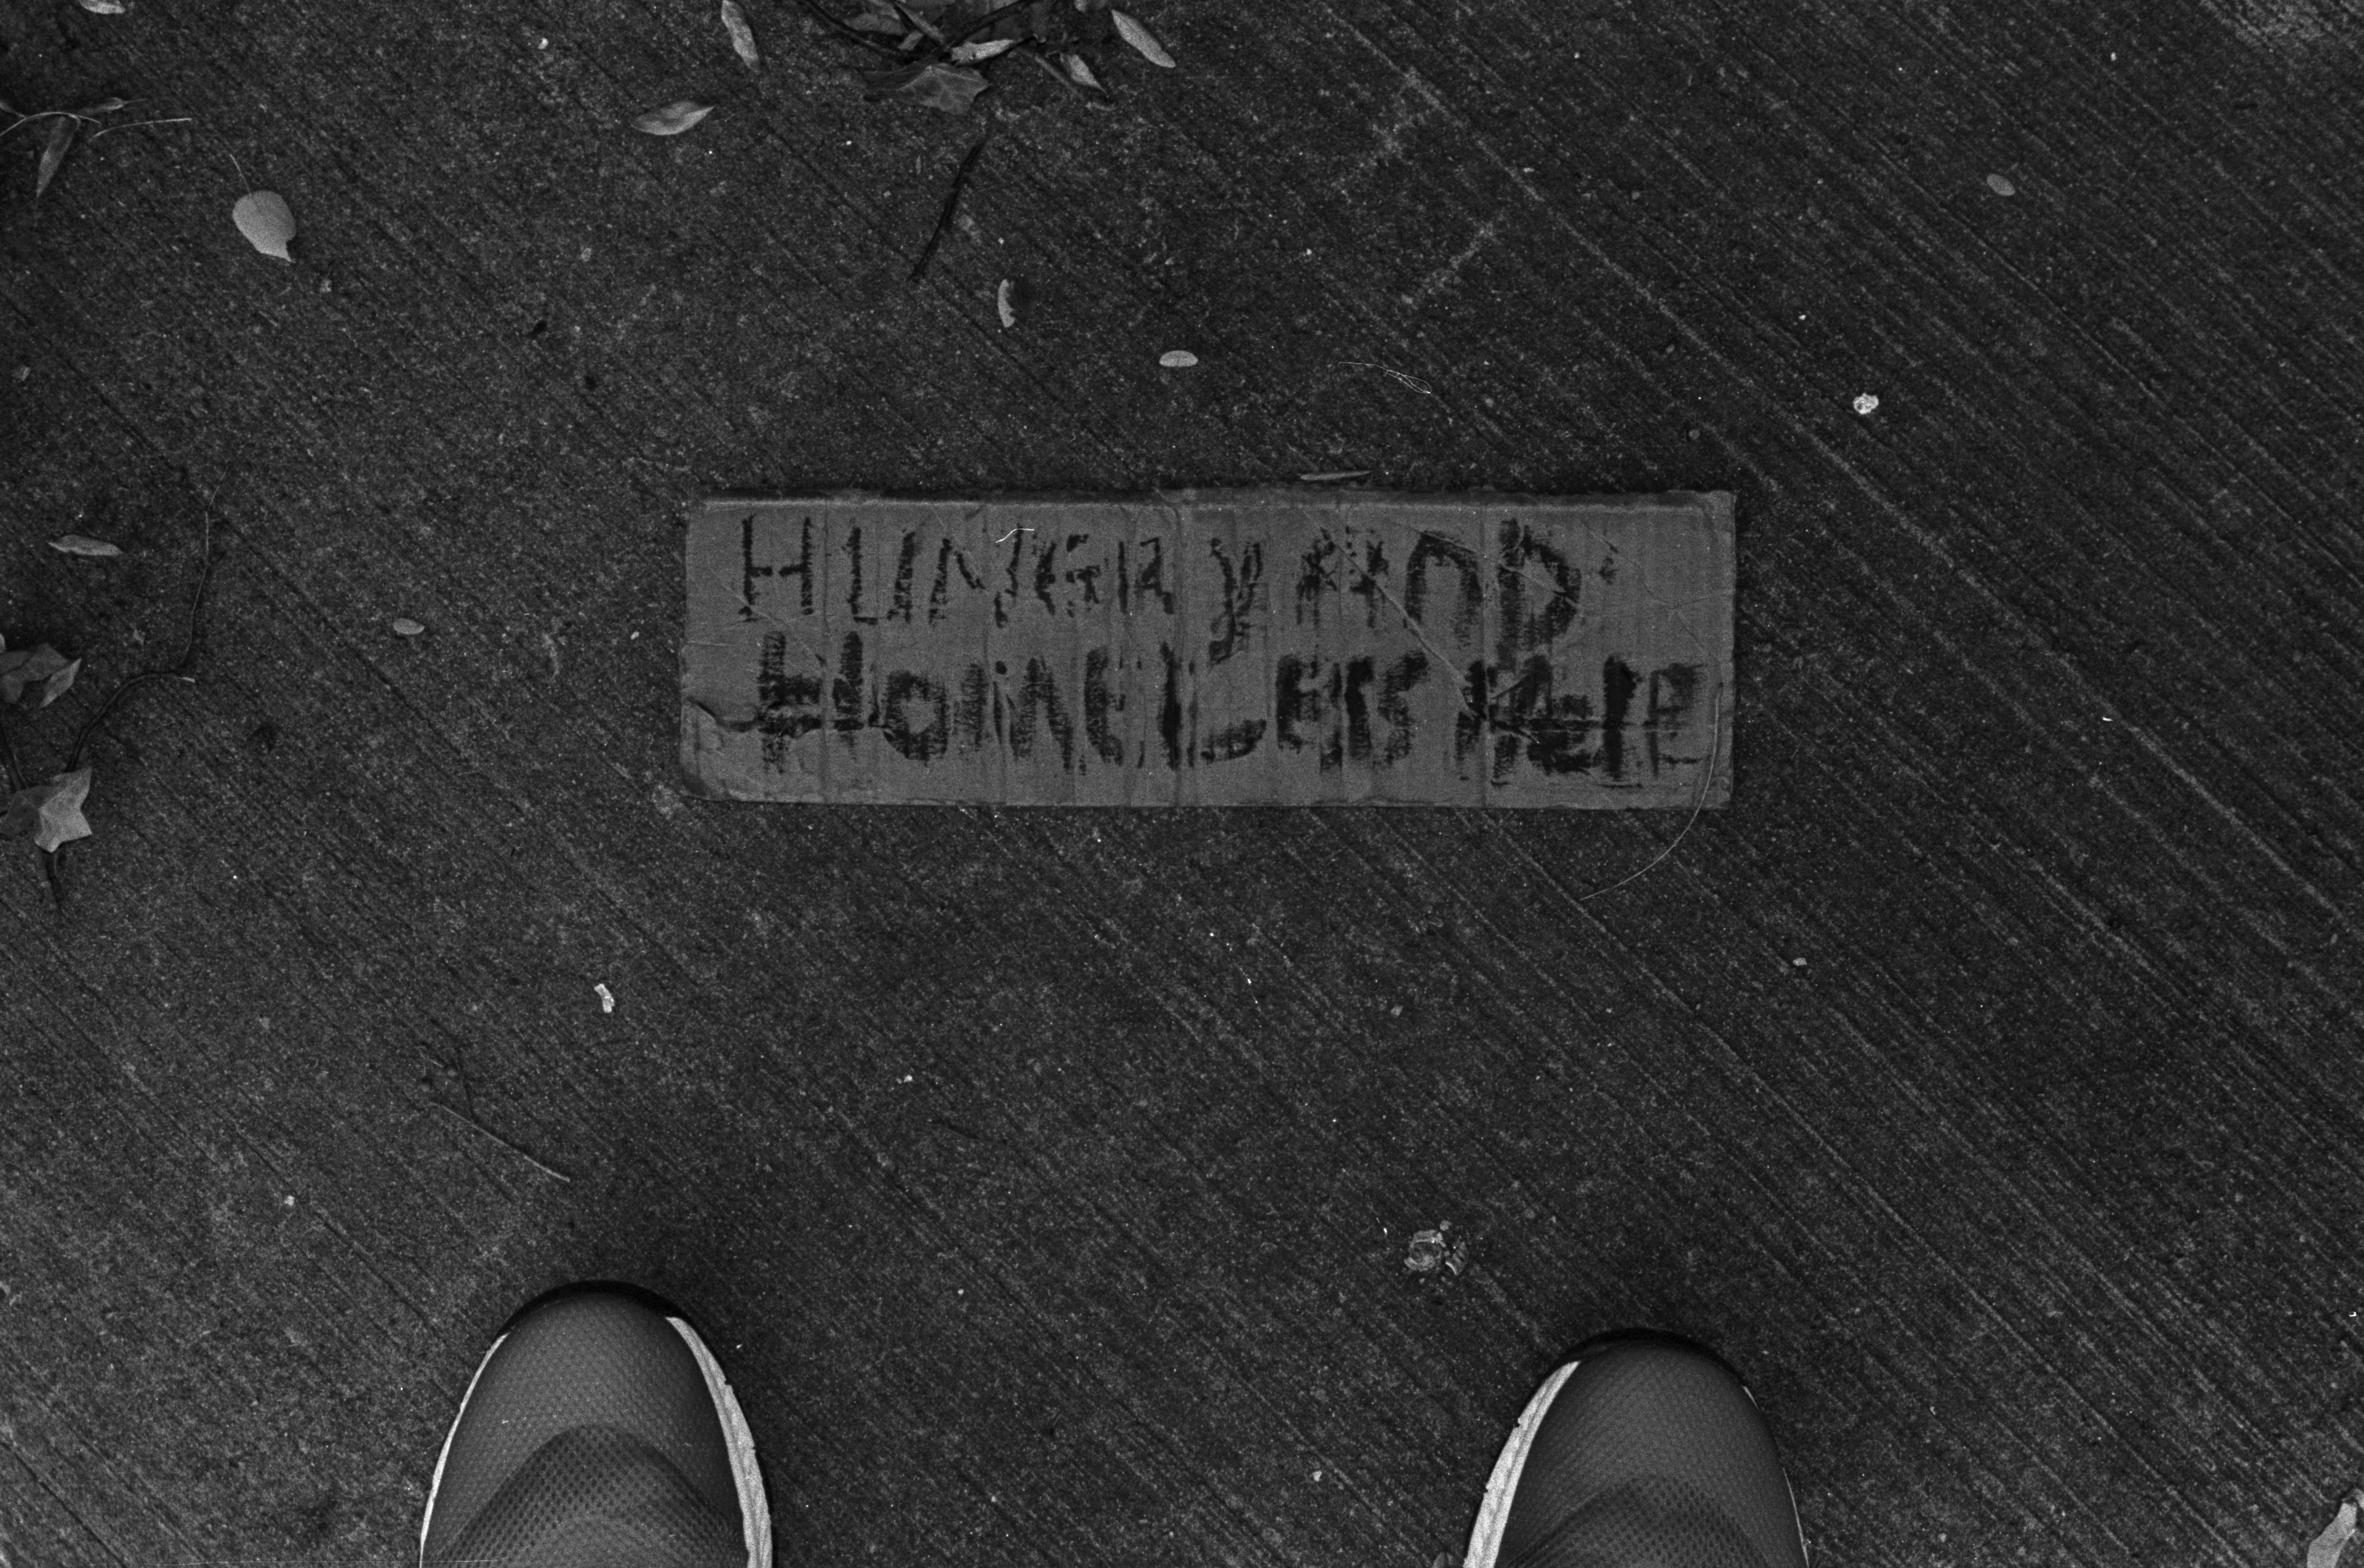 HUNGRY AND
HOMELESS HELP